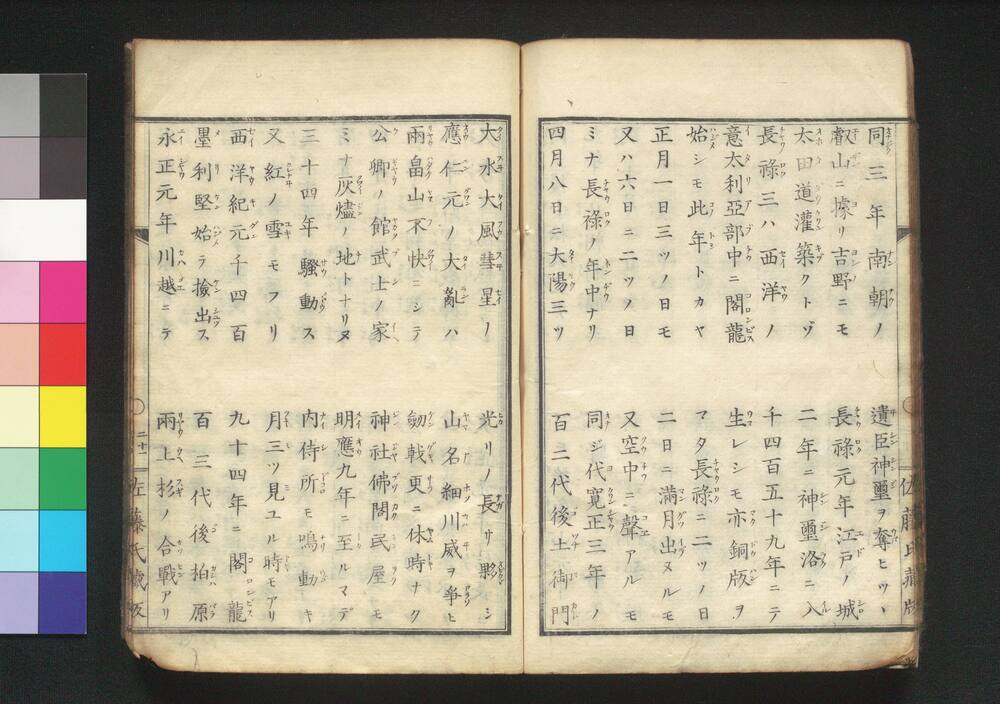 同三年南朝ノ 遺臣神璽ヲ奪ヒツヽ
叡山ニ據リ吉野ニモ 長祿元年江戸ノ城
太田道灌築クトゾ 二年ニ神璽洛ニ入
長祿三ハ西洋ノ 千四百五十九年ニテ
意太利亞部中ニ閣龍 生レシモ亦銅版ヲ
始シモ此年トカヤ マタ長祿ニ二ツノ日
正月一日三ツノ日モ 二日ニ滿月出ヌルモ
又ハ六日ニ二ツノ日 又空中ニ聲アルモ
ミナ長祿ノ年中ナリ 同ジ代寛正三年ノ
四月八日ニ大陽三ツ 百二代後土御門
大水大風彗星ノ 光リノ長サ夥シ
應仁元ノ大亂ハ 山名細川威ヲ爭ヒ
兩畠山不快ニシテ 劔戟更ニ休時ナク
公卿ノ館武士ノ家 神社佛閣民屋モ
ミナ灰燼ノ地トナリヌ 明應九年ニ至ルマデ
三十四年騷動ス 内侍所モ鳴動キ
又紅ノ雪モフリ 月三ツ見ユル時モアリ
西洋紀元千四百 九十四年ニ閣龍
墨利堅始テ撿出ス 百三代後柏原
永正元年川越ニテ 兩上杉ノ合戰アリ
二十一 佐藤氏藏板